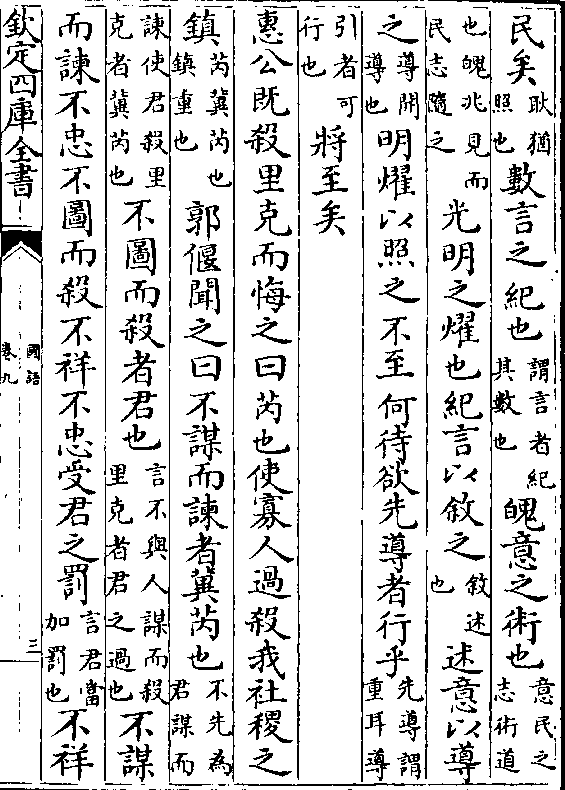 民矣耿猶照也數言之紀也謂言者紀其數也魄意之術也意民之志術道
也魄兆見而民志隨之光明之燿也紀言以敘之敘述也述意以導
之導開導也明燿以照之不至何待欲先導者行乎先導謂重耳導
引者可行也將至矣
惠公既殺里克而悔之曰芮也使寡人過殺我社稷之
鎮芮冀芮也鎮重也郭偃聞之曰不謀而諫者冀芮也不先為君謀而
諫使君殺里克者冀芮也不圖而殺者君也言不與人謀而殺里克者君之過也不謀
而諫不忠不圖而殺不祥不忠受君之罰言君當加罰也不祥
欽定四庫全書
國語
卷九
三